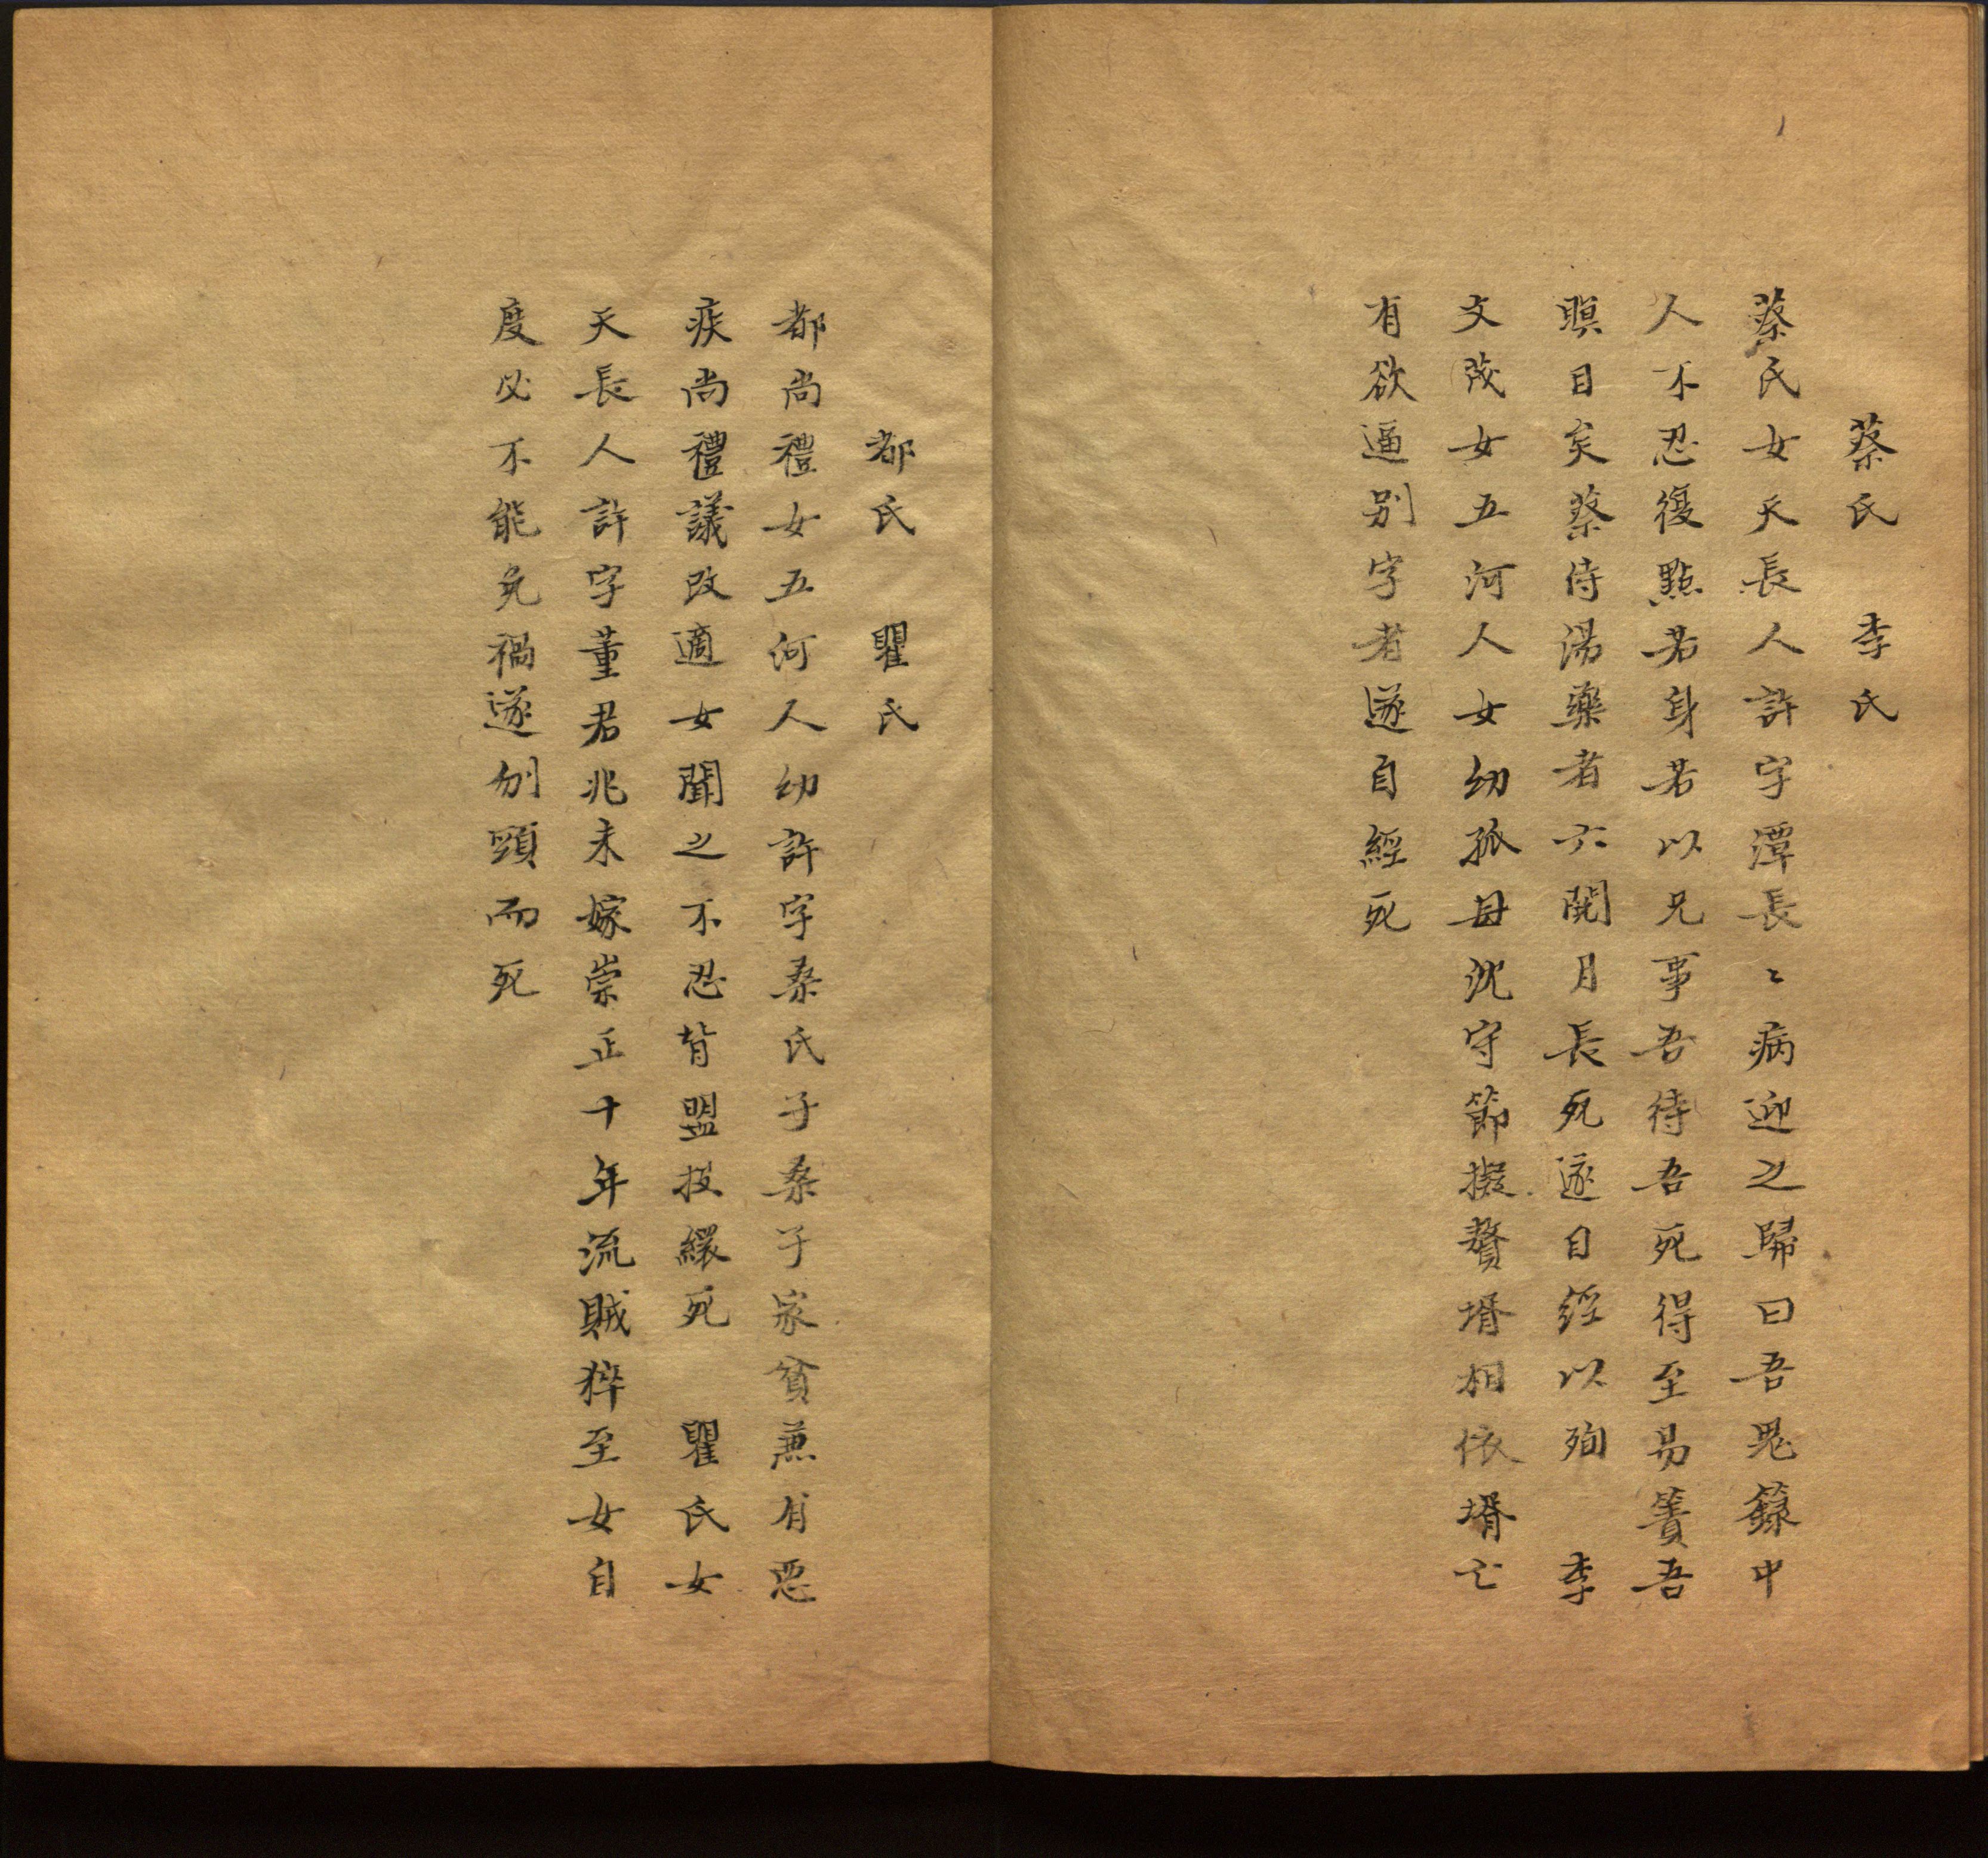 蔡氏　李氏
蔡氏女天長人許字潭長〻病迎之歸曰吾鬼籙中
人不忍復點若身若以兄事吾待吾死得至易簀吾
瞑目矣蔡侍湯藥者六閱月長死遂自經以殉　李
文茂女五河人女幼孤母沈守節擬贅壻相依壻亡
有欲逼别字者遂自經死
都氏　瞿氏
都尚禮女五河人幼許字桑氏子桑子家貧兼有惡
疾尚禮議改適女聞之不忍背盟投繯死　瞿氏女
天長人許字董君兆未嫁崇正十年流賊猝至女自
度必不能免禍遂刎頸而死